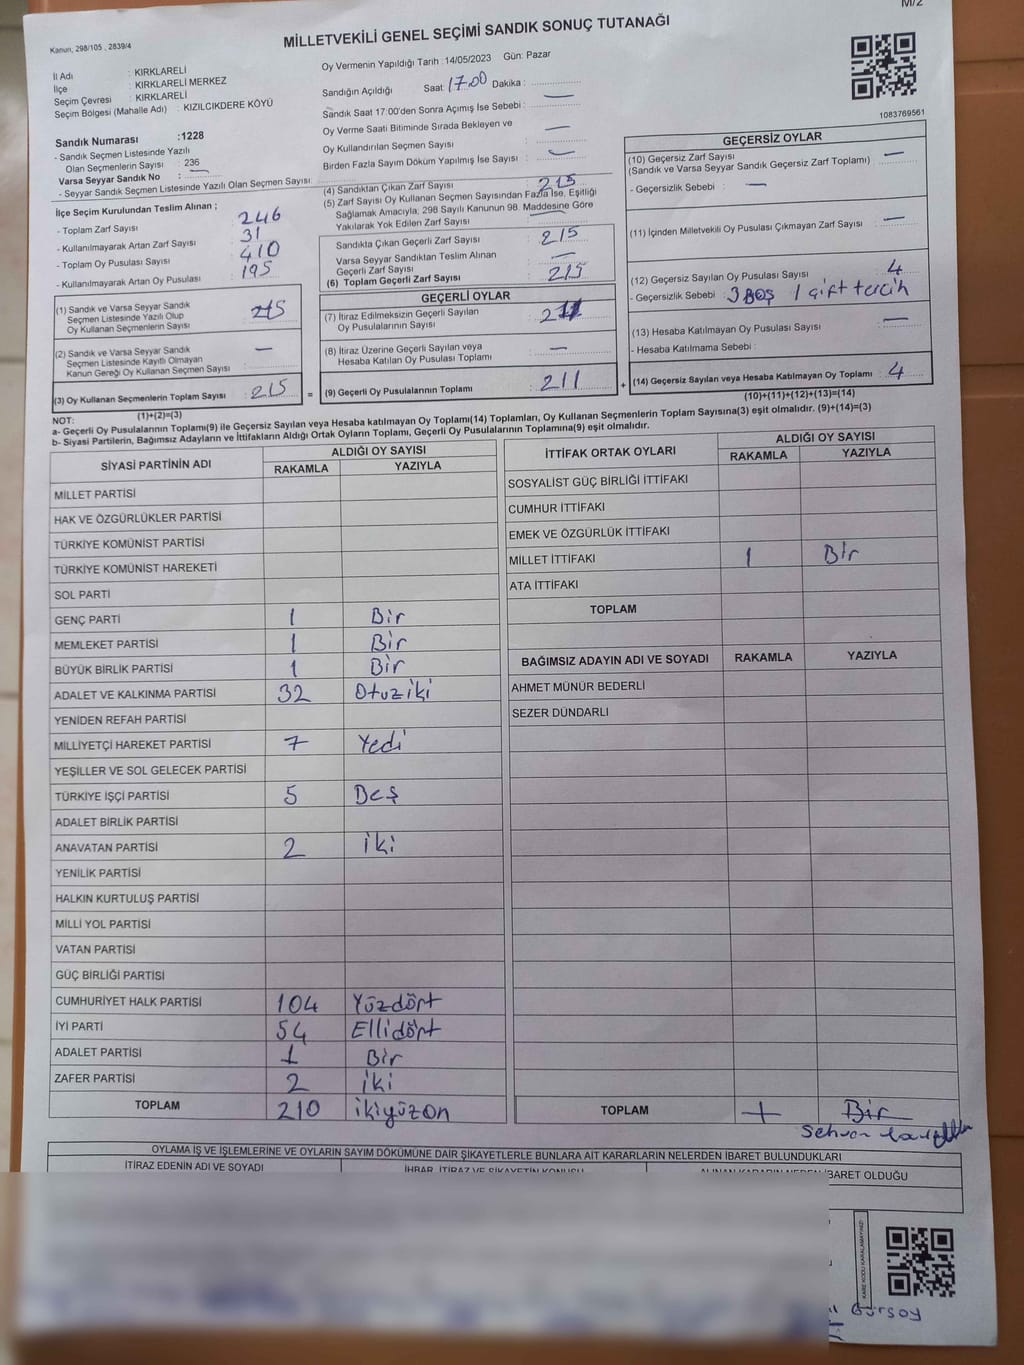 M/2
Kanun; 298/105 , 2839/4
MİLLETVEKİLİ GENEL SEÇİMİ SANDIK SONUÇ TUTANAĞI
İl Adı : KIRKLARELİ
İlçe : KIRKLARELİ MERKEZ
Seçim Çevresi : KIRKLARELİ
Seçim Bölgesi (Mahalle Adı) : KIZILCIKDERE KÖYÜ
Sandık Numarası :1228
- Sandık Seçmen Listesinde Yazılı
Olan Seçmenlerin Sayısı : 236
Varsa Seyyar Sandık No : —
- Seyyar Sandık Seçmen Listesinde Yazılı Olan Seçmen Sayısı:
Oy Vermenin Yapıldığı Tarih :14/05/2023 Gün: Pazar
Sandığın Açıldığı Saat: 17.00 Dakika : —
Sandık Saat 17:00'den Sonra Açımış İse Sebebi : —
Oy Verme Saati Bitiminde Sırada Bekleyen ve
Oy Kullandırılan Seçmen Sayısı : —
Birden Fazla Sayım Döküm Yapılmış İse Sayısı : —
1083769561
İlçe Seçim Kurulundan Teslim Alınan ;
- Toplam Zarf Sayısı : 246
- Kullanılmayarak Artan Zarf Sayısı : 31
- Toplam Oy Pusulası Sayısı : 410
- Kullanılmayarak Artan Oy Pusulası : 195
(1) Sandık ve Varsa Seyyar Sandık
Seçmen Listesinde Yazılı Olup
Oy Kullanan Seçmenlerin Sayısı : 215
(2) Sandık ve Varsa Seyyar Sandık
Seçmen Listesinde Kayıtlı Olmayan
Kanun Gereği Oy Kullanan Seçmen Sayısı : —
(3) Oy Kullanan Seçmenlerin Toplam Sayısı : 215
(1)+(2)=(3)
(4) Sandıktan Çıkan Zarf Sayısı : 215
(5) Zarf Sayısı Oy Kullanan Seçmen Sayısından Fazla İse, Eşitliği
Sağlamak Amacıyla; 298 Sayılı Kanunun 98. Maddesine Göre
Yakılarak Yok Edilen Zarf Sayısı : —
Sandıkta Çıkan Geçerli Zarf Sayısı : 215
Varsa Seyyar Sandıktan Teslim Alınan
Geçerli Zarf Sayısı : —
(6) Toplam Geçerli Zarf Sayısı : 215
GEÇERLİ OYLAR
(7) İtiraz Edilmeksizin Geçerli Sayılan
Oy Pusulalarının Sayısı : 211
(8) İtiraz Üzerine Geçerli Sayılan veya
Hesaba Katılan Oy Pusulası Toplamı : —
= (9) Geçerli Oy Pusulalarının Toplamı : 211 +
GEÇERSİZ OYLAR
(10) Geçersiz Zarf Sayısı : —
(Sandık ve Varsa Seyyar Sandık Geçersiz Zarf Toplamı)
- Geçersizlik Sebebi : —
(11) İçinden Milletvekili Oy Pusulası Çıkmayan Zarf Sayısı : —
(12) Geçersiz Sayılan Oy Pusulası Sayısı : 4
- Geçersizlik Sebebi : 3 BOŞ 1 çift tercih
(13) Hesaba Katılmayan Oy Pusulası Sayısı : —
- Hesaba Katılmama Sebebi :
(14) Geçersiz Sayılan veya Hesaba Katılmayan Oy Toplamı : 4
(10)+(11)+(12)+(13)=(14)
NOT:
a- Geçerli Oy Pusulalarının Toplamı(9) ile Geçersiz Sayılan veya Hesaba katılmayan Oy Toplamı(14) Toplamları, Oy Kullanan Seçmenlerin Toplam Sayısına(3) eşit olmalıdır. (9)+(14)=(3)
b- Siyasi Partilerin, Bağımsız Adayların ve İttifakların Aldığı Ortak Oyların Toplamı, Geçerli Oy Pusulalarının Toplamına(9) eşit olmalıdır.
SİYASİ PARTİNİN ADI ALDIĞI OY SAYISI
RAKAMLA YAZIYLA
MİLLET PARTİSİ
HAK VE ÖZGÜRLÜKLER PARTİSİ
TÜRKİYE KOMÜNİST PARTİSİ
TÜRKİYE KOMÜNİST HAREKETİ
SOL PARTİ
GENÇ PARTİ 1 Bir
MEMLEKET PARTİSİ 1 Bir
BÜYÜK BİRLİK PARTİSİ 1 Bir
ADALET VE KALKINMA PARTİSİ 32 Otuziki
YENİDEN REFAH PARTİSİ
MİLLİYETÇİ HAREKET PARTİSİ 7 Yedi
YEŞİLLER VE SOL GELECEK PARTİSİ
TÜRKİYE İŞÇİ PARTİSİ 5 Beş
ADALET BİRLİK PARTİSİ
ANAVATAN PARTİSİ 2 iki
YENİLİK PARTİSİ
HALKIN KURTULUŞ PARTİSİ
MİLLİ YOL PARTİSİ
VATAN PARTİSİ
GÜÇ BİRLİĞİ PARTİSİ
CUMHURİYET HALK PARTİSİ 104 Yüzdört
İYİ PARTİ 54 Ellidört
ADALET PARTİSİ 1 Bir
ZAFER PARTİSİ 2 iki
TOPLAM 210 ikiyüzon
İTTİFAK ORTAK OYLARI ALDIĞI OY SAYISI
RAKAMLA YAZIYLA
SOSYALİST GÜÇ BİRLİĞİ İTTİFAKI
CUMHUR İTTİFAKI
EMEK VE ÖZGÜRLÜK İTTİFAKI
MİLLET İTTİFAKI 1 Bir
ATA İTTİFAKI
TOPLAM
BAĞIMSIZ ADAYIN ADI VE SOYADI RAKAMLA YAZIYLA
AHMET MÜNÜR BEDERLİ
SEZER DÜNDARLI
TOPLAM 1 Bir
Sehven
OYLAMA İŞ VE İŞLEMLERİNE VE OYLARIN SAYIM DÖKÜMÜNE DAİR ŞİKAYETLERLE BUNLARA AİT KARARLARIN NELERDEN İBARET BULUNDUKLARI
İTİRAZ EDENİN ADI VE SOYADI İHBAR, İTİRAZ VE ŞİKAYETİN KONUSU ALINAN KARARIN NEDEN İBARET OLDUĞU
KARE KODU KARALAMAYINIZ!
Gürsoy